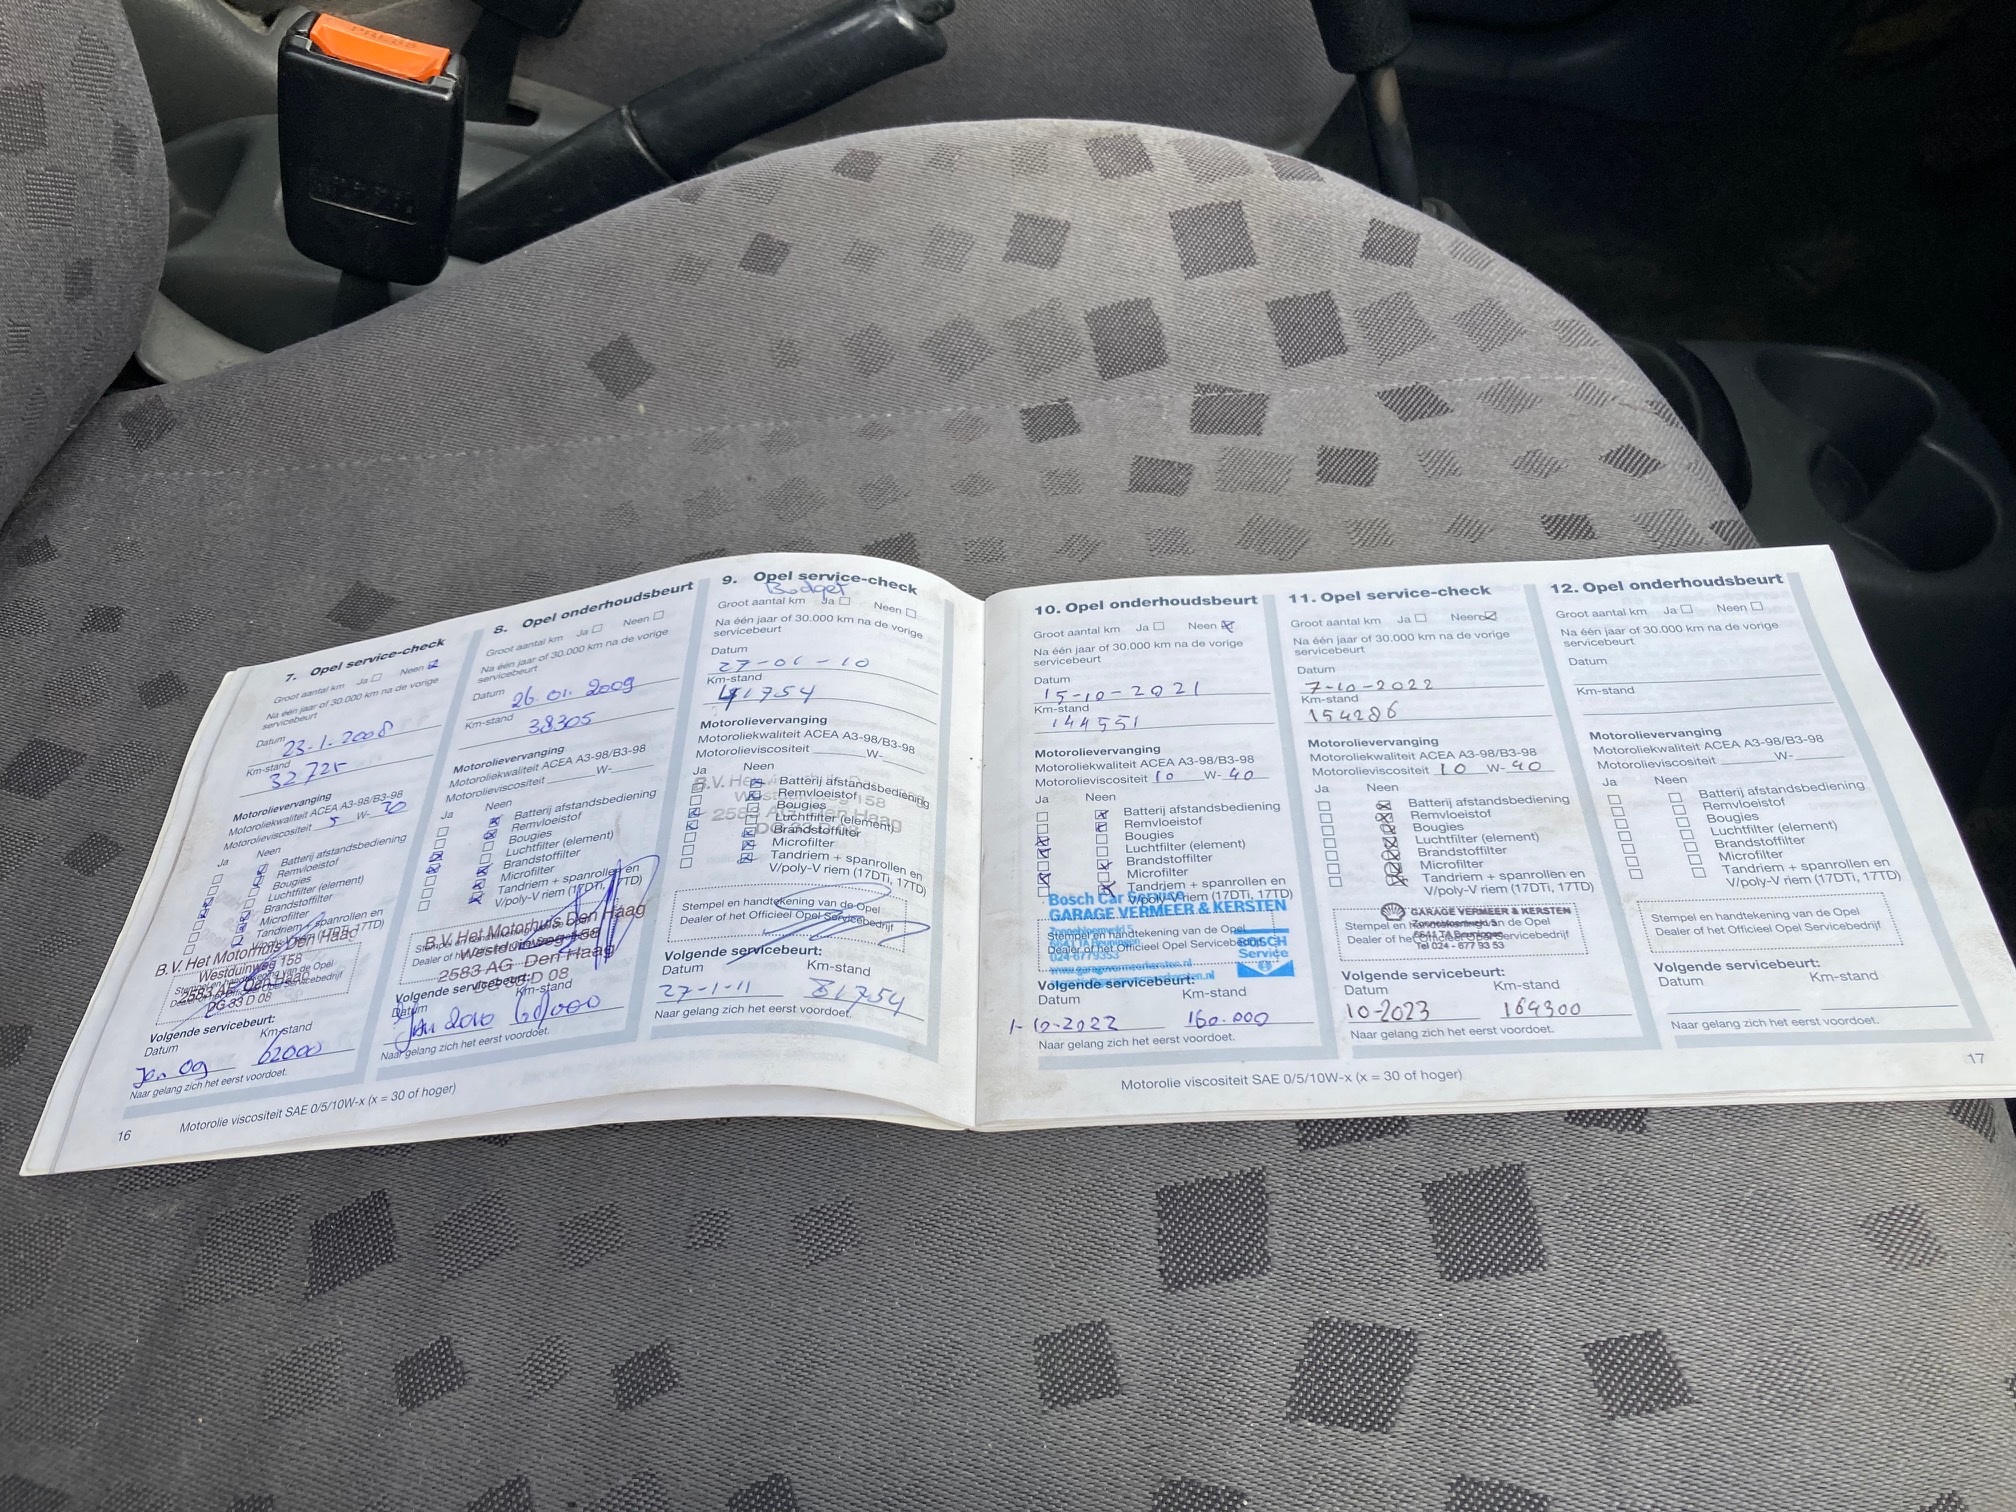 PRESS
7. Opel service-check
Groot aantal km Ja Neen
Na één jaar of 30.000 km na de vorige
servicebeurt
Datum 23-1-2008
Km-stand
Motorolievervanging
Motoroliekwaliteit ACEA A3-98/B3-98
Motorolieviscositeit 5 W-30
Ja Neen
Batterij afstandsbediening
Remvloeistof
Bougies
Luchtfilter (element)
Brandstoffilter
Microfilter
Tandriem + spanrollen en
V/poly-V riem (17DTi, 17TD)
B.V. Het Motorhuis Den Haag
Westduinweg 158
2583 AG Den Haag
DG 33 D 08
Stempel en handtekening van de Opel
Dealer of het Officieel Opel Servicebedrijf
Volgende servicebeurt:
Datum Km-stand
Jan 09 62000
Naar gelang zich het eerst voordoet.
8. Opel onderhoudsbeurt
Groot aantal km Ja Neen
Na één jaar of 30.000 km na de vorige
servicebeurt
Datum 26.01.2009
Km-stand 38305
Motorolievervanging
Motoroliekwaliteit ACEA A3-98/B3-98
Motorolieviscositeit W-
Ja Neen
Batterij afstandsbediening
Remvloeistof
Bougies
Luchtfilter (element)
Brandstoffilter
Microfilter
Tandriem + spanrollen en
V/poly-V riem (17DTi, 17TD)
B.V. Het Motorhuis Den Haag
Westduinweg 158
2583 AG Den Haag
DG 33 D 08
Volgende servicebeurt:
Datum Km-stand
Jan 2010
Naar gelang zich het eerst voordoet.
9. Opel service-check
Budget
Groot aantal km Ja Neen
Na één jaar of 30.000 km na de vorige
servicebeurt
Datum
27-01-10
Km-stand
41754
Motorolievervanging
Motoroliekwaliteit ACEA A3-98/B3-98
Motorolieviscositeit W-
Ja Neen
Batterij afstandsbediening
Remvloeistof
Bougies
Luchtfilter (element)
Brandstoffilter
Microfilter
Tandriem + spanrollen en
V/poly-V riem (17DTi, 17TD)
Stempel en handtekening van de Opel
Dealer of het Officieel Opel Servicebedrijf
Volgende servicebeurt:
Datum Km-stand
27-1-11
Naar gelang zich het eerst voordoet.
16
Motorolie viscositeit SAE 0/5/10W-x (x = 30 of hoger)
10. Opel onderhoudsbeurt
Groot aantal km Ja Neen
Na één jaar of 30.000 km na de vorige
servicebeurt
Datum
15-10-2021
Km-stand
144551
Motorolievervanging
Motoroliekwaliteit ACEA A3-98/B3-98
Motorolieviscositeit 10 W-40
Ja Neen
Batterij afstandsbediening
Remvloeistof
Bougies
Luchtfilter (element)
Brandstoffilter
Microfilter
Tandriem + spanrollen en
V/poly-V riem (17DTi, 17TD)
Bosch Car Service
GARAGE VERMEER & KERSTEN
Stempel en handtekening van de Opel
Dealer of het Officieel Opel Servicebedrijf
024-6779353
BOSCH
Service
Volgende servicebeurt:
Datum Km-stand
1-10-2022 160.000
Naar gelang zich het eerst voordoet.
11. Opel service-check
Groot aantal km Ja Neen
Na één jaar of 30.000 km na de vorige
servicebeurt
Datum
7-10-2022
Km-stand
154286
Motorolievervanging
Motoroliekwaliteit ACEA A3-98/B3-98
Motorolieviscositeit 10 W-40
Ja Neen
Batterij afstandsbediening
Remvloeistof
Bougies
Luchtfilter (element)
Brandstoffilter
Microfilter
Tandriem + spanrollen en
V/poly-V riem (17DTi, 17TD)
GARAGE VERMEER & KERSTEN
Stempel en handtekening van de Opel
Dealer of het Officieel Opel Servicebedrijf
Tel 024 - 677 93 53
Volgende servicebeurt:
Datum Km-stand
10-2023 164300
Naar gelang zich het eerst voordoet.
12. Opel onderhoudsbeurt
Groot aantal km Ja Neen
Na één jaar of 30.000 km na de vorige
servicebeurt
Datum
Km-stand
Motorolievervanging
Motoroliekwaliteit ACEA A3-98/B3-98
Motorolieviscositeit W-
Ja Neen
Batterij afstandsbediening
Remvloeistof
Bougies
Luchtfilter (element)
Brandstoffilter
Microfilter
Tandriem + spanrollen en
V/poly-V riem (17DTi, 17TD)
Stempel en handtekening van de Opel
Dealer of het Officieel Opel Servicebedrijf
Volgende servicebeurt:
Datum Km-stand
Naar gelang zich het eerst voordoet.
Motorolie viscositeit SAE 0/5/10W-x (x = 30 of hoger)
17